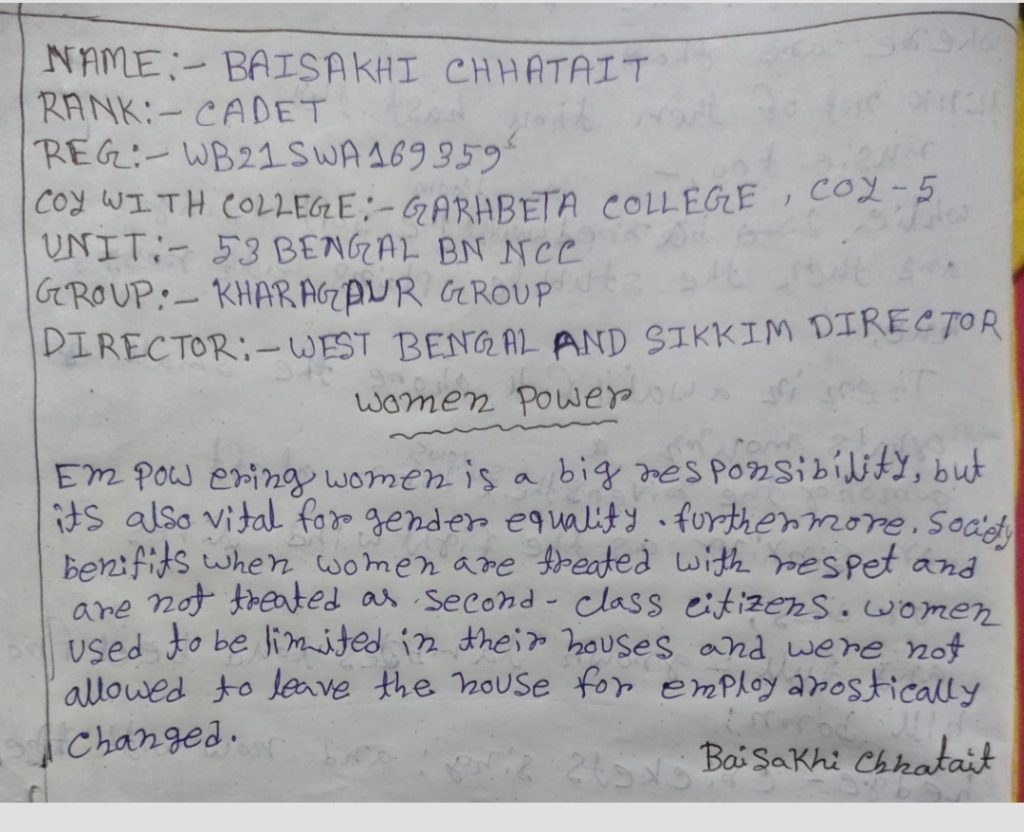 NAME:- BAISAKHI CHHATAIT
RANK:- CADET
REG:- WB21SWA169359
COY WITH COLLEGE:- GARHBETA COLLEGE, COY-5
UNIT:- 53 BENGAL BN NCC
GROUP:- KHARAGPUR GROUP
DIRECTOR:- WEST BENGAL AND SIKKIM DIRECTOR
women power
Em pow ering women is a big responsibility, but
its also vital for gender equality. furthermore. Society
benifits when women are treated with respet and
are not treated as second-class citizens. women
used to be limited in their houses and were not
allowed to leave the house for employ drostically
changed.
Baisakhi Chhatait